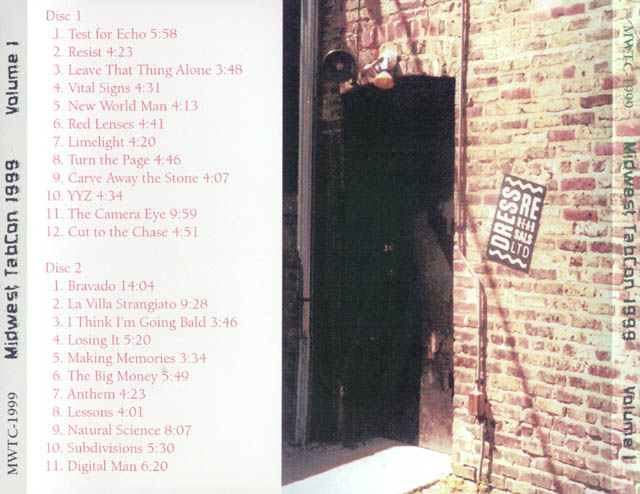 MWTC-1999 Midwest TabCon 1999 Volume 1
Disc 1
1. Test for Echo 5:58
2. Resist 4:23
3. Leave That Thing Alone 3:48
4. Vital Signs 4:31
5. New World Man 4:13
6. Red Lenses 4:41
7. Limelight 4:20
8. Turn the Page 4:46
9. Carve Away the Stone 4:07
10. YYZ 4:34
11. The Camera Eye 9:59
12. Cut to the Chase 4:51
Disc 2
1. Bravado 14:04
2. La Villa Strangiato 9:28
3. I Think I'm Going Bald 3:46
4. Losing It 5:20
5. Making Memories 3:34
6. The Big Money 5:49
7. Anthem 4:23
8. Lessons 4:01
9. Natural Science 8:07
10. Subdivisions 5:30
11. Digital Man 6:20
DRESS
RE
HEAR
SALS
LTD
MWTC-1999 Midwest TabCon 1999 Volume 1